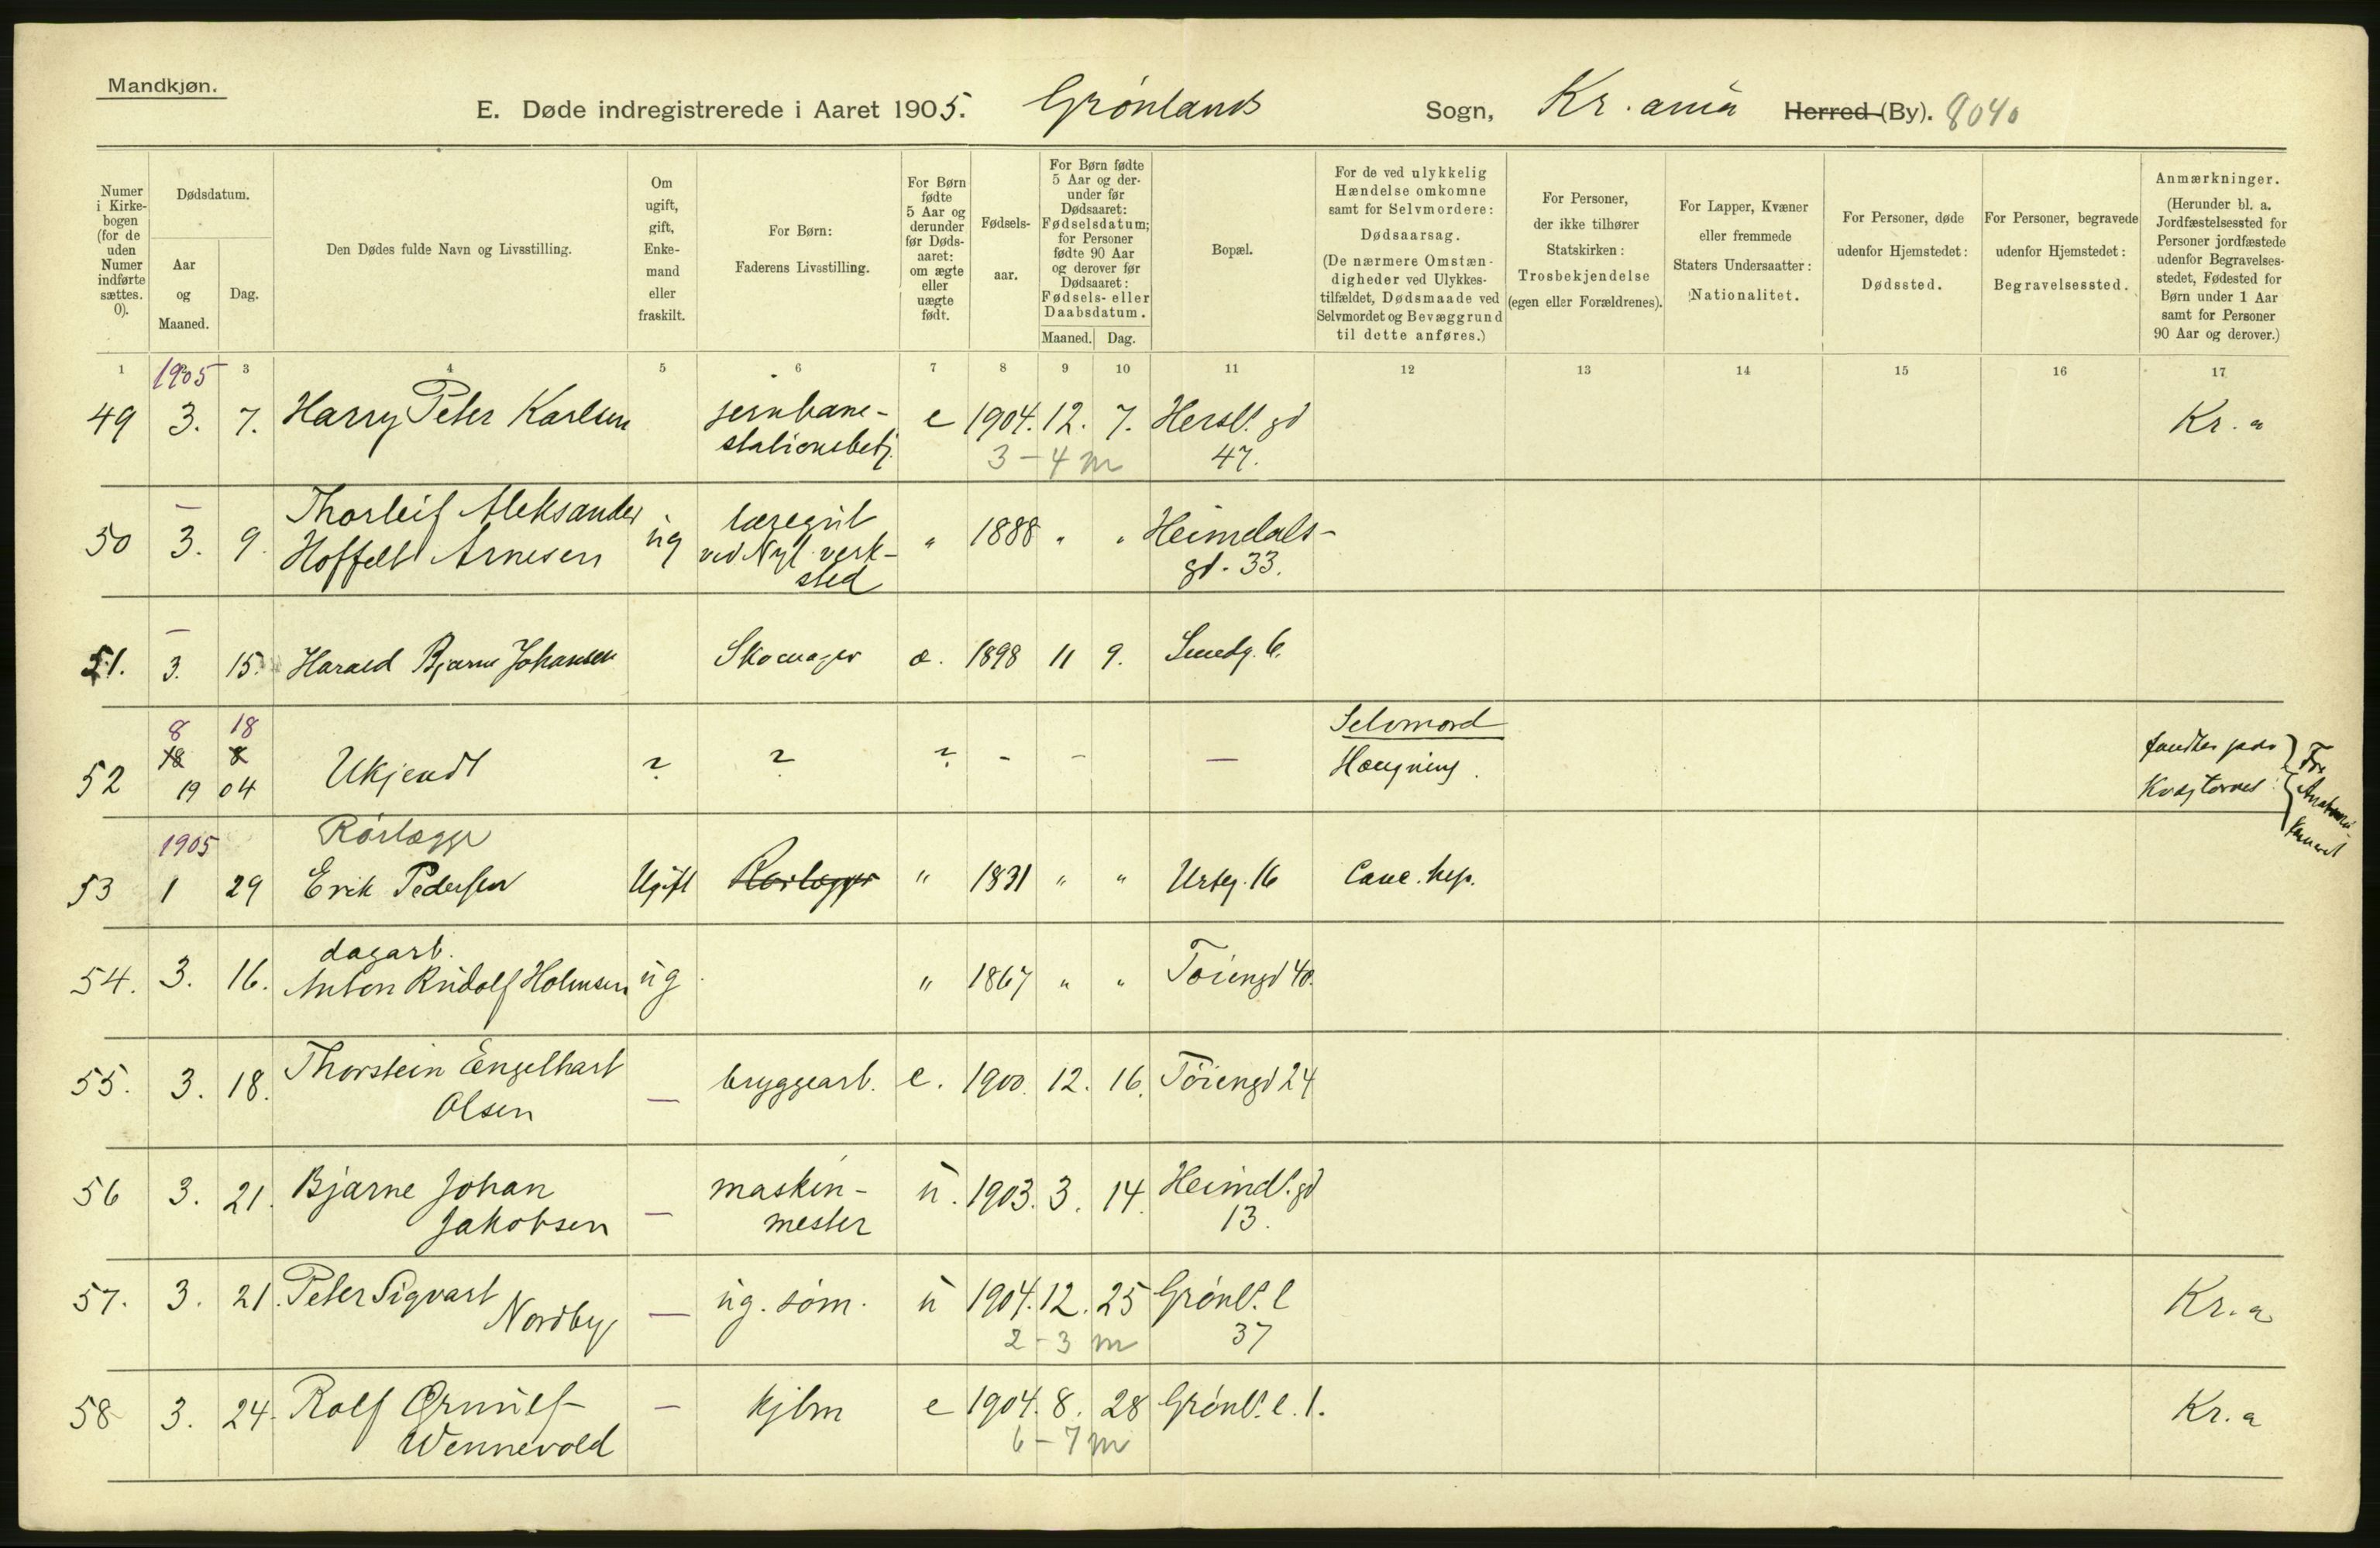 Mandkjøn.
E. Døde indregistrerede i Aaret 1905. Grønlands Sogn, Kr.ania Herred (By). 8040
Numer i Kirkebogen (for de uden Numer indførte sættes. 0).
Dødsdatum.
Aar og Maaned.
Dag.
Den Dødes fulde Navn og Livsstilling.
Om ugift, gift, Enkemand eller fraskilt.
For Børn: Faderens Livsstilling.
For Børn fødte 5 Aar og derunder før Dødsaaret: om ægte eller uægte født.
Fødselsaar.
For Børn fødte 5 Aar og derunder før Dødsaaret: Fødselsdatum; for Personer fødte 90 Aar og derover før Dødsaaret: Fødsels- eller Daabsdatum.
Maaned. Dag.
Bopæl.
For de ved ulykkelig Hændelse omkomne samt for Selvmordere: Dødsaarsag. (De nærmere Omstændigheder ved Ulykkestilfældet, Dødsmaade ved Selvmordet og Bevæggrund til dette anføres.)
For Personer, der ikke tilhører Statskirken: Trosbekjendelse (egen eller Forældrenes).
For Lapper, Kvæner eller fremmede Staters Undersaatter: Nationalitet.
For Personer, døde udenfor Hjemstedet: Dødssted.
For Personer, begravede udenfor Hjemstedet: Begravelsessted.
Anmærkninger. (Herunder bl. a. Jordfæstelsessted for Personer jordfæstede udenfor Begravelsesstedet, Fødested for Børn under 1 Aar samt for Personer 90 Aar og derover.)
1 3 4 5 6 7 8 9 10 11 12 13 14 15 16 17
1905
49 3. 7. Harry Peter Karlsen jernbane- e 1904. 12. 7. Hersl. gd Kr. a
stationsbetj. 3-4 m 47.
— Thorleif Aleksander læregut
50 3. 9. Hoffelt Arnesen ug ved Nyl. verk- " 1888 " " Heimdals-
sted gd. 33.
—
51. 3. 15. Harald Bjarne Johansen Skomager æ. 1898 11 9. Smedg. 6.
8 18 Selvmord
18 8 fandtes paa
52 19 04 Ukjendt ? ? ? - - — Hængning. Kvægtorvet For
1905 Rørlægger
53 1 29 Erik Pedersen Ugift Rørlægger " 1831 " " Urteg. 16 Canc. hep.
dagarb.
54. 3. 16. Anton Rudolf Holmsen ug " 1867 " " Tøiengd 40.
55. 3. 18. Thorstein Engelhart — bryggearb. e. 1900. 12. 16. Tøiengd 24
Olsen
56 3. 21. Bjarne Johan — maskin- u. 1903. 3. 14. Heimdl. gd
Jakobsen mester 13.
57. 3. 21. Peter Sigvart — ug. søm. u 1904. 12. 25 Grønl. l Kr. a
Nordby 2-3 m 37
58 3. 24. Rolf Ørnulf — kjbm e 1904. 8. 28 Grønl. l. 1. Kr. a
Wennevold 6-7 m